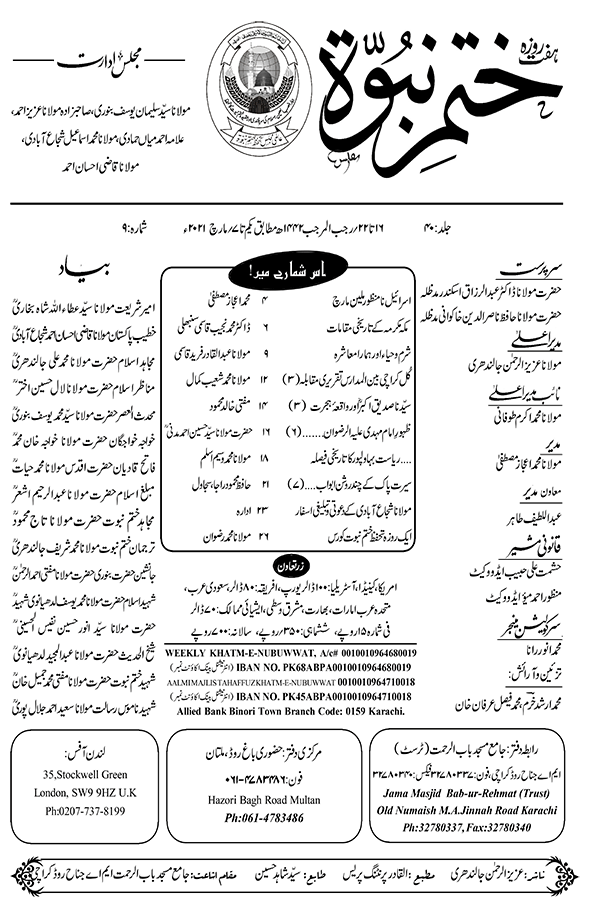 ہفت روزہ
ختم نبوۃ
مجلس ادارت
مولانا سیّد سلیمان یوسف بنوری، صاحبزادہ مولانا عزیز احمد،
علامہ احمد میاں حمادی، مولانا محمد اسماعیل شجاع آبادی،
مولانا قاضی احسان احمد
جلد: ۴۰
۱۶ تا ۲۲/ رجب المرجب ۱۴۴۲ھ مطابق یکم تا ۷/ مارچ ۲۰۲۱ء
شمارہ: ۹
سرپرست
حضرت مولانا ڈاکٹر عبدالرزاق اسکندر مدظلہ
حضرت مولانا حافظ ناصر الدین خاکوانی مدظلہ
مدیر اعلیٰ
مولانا عزیز الرحمٰن جالندھری
نائب مدیر اعلیٰ
مولانا محمد اکرم طوفانی
مدیر
مولانا محمد اعجاز مصطفیٰ
معاون مدیر
عبداللطیف طاہر
قانونی مشیر
حشمت علی حبیب ایڈووکیٹ
منظور احمد میؤ ایڈووکیٹ
سرکولیشن منیجر
محمد انور رانا
تزئین و آرائش:
محمد ارشد خرم، محمد فیصل عرفان خان
اس شمارے میں!
اسرائیل نامنظور ملین مارچ ۴ محمد اعجاز مصطفیٰ
مکہ مکرمہ کے تاریخی مقامات ۶ ڈاکٹر محمد نجیب قاسمی سنبھلی
شرم و حیاء اور ہمارا معاشرہ ۹ مولانا عبدالقادر فرید قاسمی
کل کراچی بین المدارس تقریری مقابلہ (۳) ۱۲ مولانا محمد شعیب کمال
سیّدنا صدیق اکبرؓ اور واقعہ ہجرت (۳) ۱۴ مفتی خالد محمود
ظہور امام مہدی علیہ الرضوان......(۶) ۱۶ حضرت مولانا سیّد حسین احمد مدنیؒ
....ریاست بہاولپور کا تاریخی فیصلہ ۱۸ مولانا محمد وسیم اسلم
سیرت پاک کے چند روشن ابواب....(۷) ۲۱ حافظ محمود راجا، سجاول
مولانا شجاع آبادی کے دعوتی و تبلیغی اسفار ۲۳ ادارہ
ایک روزہ تحفظ ختم نبوت کورس ۲۶ مولانا محمد رضوان
زرتعاون
امریکا، کینیڈا، آسٹریلیا: ۱۰۰ ڈالر یورپ، افریقہ: ۸۰ ڈالر، سعودی عرب،
متحدہ عرب امارات، بھارت، مشرق وسطیٰ، ایشیائی ممالک: ۷۰ ڈالر
فی شمارہ ۱۵ روپے، ششماہی: ۳۵۰ روپے، سالانہ: ۷۰۰ روپے
WEEKLY KHATM-E-NUBUWWAT, A/c# 0010010964680019
IBAN NO. PK68ABPA0010010964680019 (انٹرنیشنل بینک اکاؤنٹ نمبر)
AALMI MAJLIS TAHAFFUZ KHATM-E-NUBUWWAT 0010010964710018
IBAN NO. PK45ABPA0010010964710018 (انٹرنیشنل بینک اکاؤنٹ نمبر)
Allied Bank Binori Town Branch Code: 0159 Karachi.
بیاد
امیر شریعت مولانا سیّد عطاء اللہ شاہ بخاریؒ
خطیب پاکستان مولانا قاضی احسان احمد شجاع آبادیؒ
مجاہد اسلام حضرت مولانا محمد علی جالندھریؒ
مناظر اسلام حضرت مولانا لال حسین اخترؒ
محدث العصر حضرت مولانا سیّد محمد یوسف بنوریؒ
خواجہ خواجگان حضرت مولانا خواجہ خان محمدؒ
فاتح قادیان حضرت اقدس مولانا محمد حیاتؒ
مبلغ اسلام حضرت مولانا عبدالرحیم اشعرؒ
مجاہد ختم نبوت حضرت مولانا تاج محمودؒ
ترجمان ختم نبوت مولانا محمد شریف جالندھریؒ
جانشین حضرت بنوری حضرت مولانا مفتی احمد الرحمٰنؒ
شہید اسلام حضرت مولانا محمد یوسف لدھیانوی شہیدؒ
حضرت مولانا سیّد انور حسین نفیس الحسینیؒ
شیخ الحدیث حضرت مولانا عبدالمجید لدھیانویؒ
شہید ختم نبوت حضرت مولانا مفتی محمد جمیل خانؒ
شہید ناموس رسالت مولانا سعید احمد جلال پوریؒ
رابطہ دفتر: جامع مسجد باب الرحمت (ٹرسٹ)
ایم اے جناح روڈ کراچی، فون: ۳۲۷۸۰۳۳۷ فیکس: ۳۲۷۸۰۳۴۰
Jama Masjid Bab-ur-Rehmat (Trust)
Old Numaish M.A.Jinnah Road Karachi
Ph:32780337, Fax:32780340
مرکزی دفتر: حضوری باغ روڈ، ملتان
فون: ۰۶۱-۴۷۸۳۴۸۶
Hazori Bagh Road Multan
Ph:061-4783486
لندن آفس:
35,Stockwell Green
London, SW9 9HZ U.K
Ph:0207-737-8199
ناشر: عزیز الرحمٰن جالندھری مطبع: القادر پرنٹنگ پریس طابع: سیّد شاہد حسین مقام اشاعت: جامع مسجد باب الرحمت ایم اے جناح روڈ کراچی